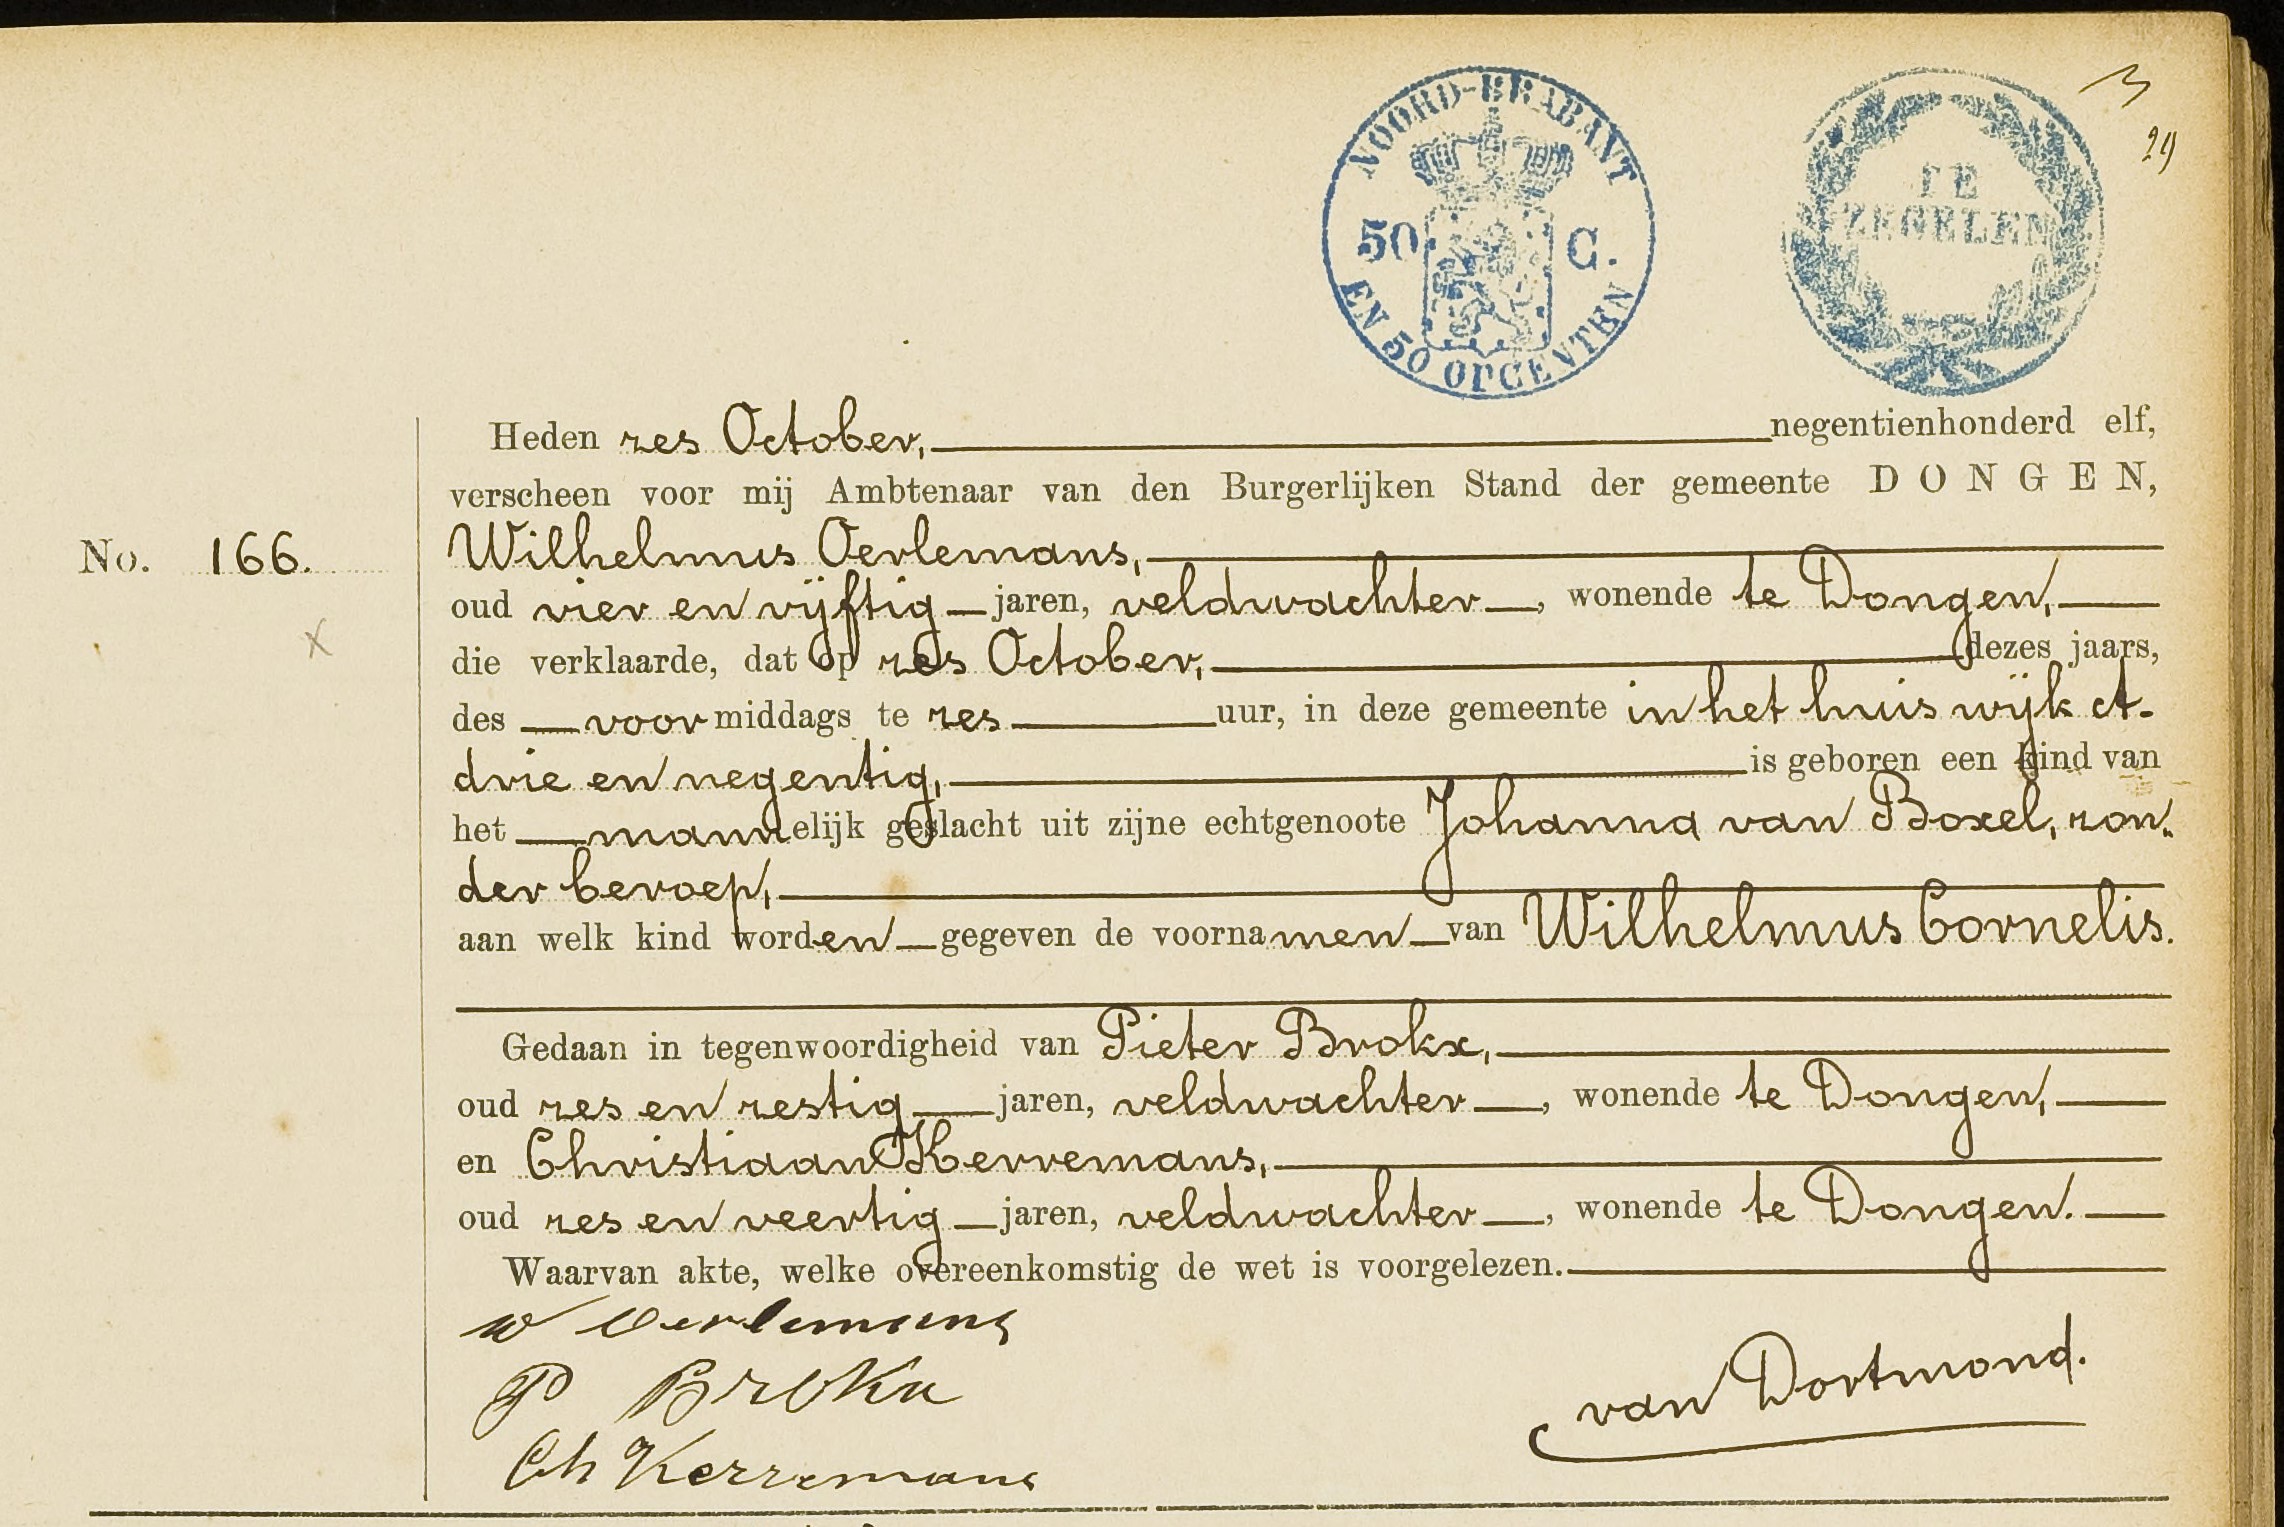 3
29
NOORD-BRABANT
50 C.
EN 50 OPCENTEN
TE
ZEGELEN
Heden zes October, negentienhonderd elf,
verscheen voor mij Ambtenaar van den Burgerlijken Stand der gemeente DONGEN,
No. 166. Wilhelmus Oerlemans,
oud vier en vijftig jaren, veldwachter, wonende te Dongen,
die verklaarde, dat op zes October, dezes jaars,
des voormiddags te zes uur, in deze gemeente in het huis wijk A-
drie en negentig, is geboren een kind van
het mannelijk geslacht uit zijne echtgenoote Johanna van Boxel, zon-
der beroep,
aan welk kind worden gegeven de voornamen van Wilhelmus Cornelis.
Gedaan in tegenwoordigheid van Pieter Brokx,
oud zes en zestig jaren, veldwachter, wonende te Dongen,
en Christiaan Kerremans,
oud zes en veertig jaren, veldwachter, wonende te Dongen.
Waarvan akte, welke overeenkomstig de wet is voorgelezen.
W Oerlemans
P Brokx
van Dortmond.
Ch Kerremans